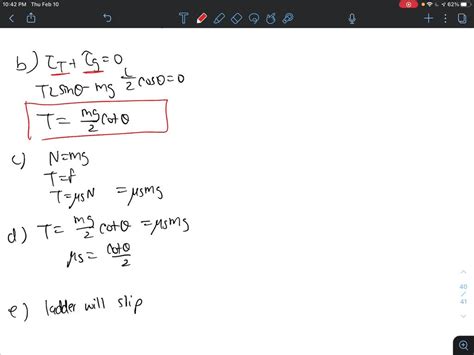 10:42 PM Thu Feb 10
62%
b) τT + τg = 0
TLsinθ - mg L/2 cosθ = 0
T = mg/2 cotθ
c) N = mg
T = f
T = μsN = μsmg
d) T = mg/2 cotθ = μsmg
μs = cotθ/2
e) ladder will slip
40
/
41